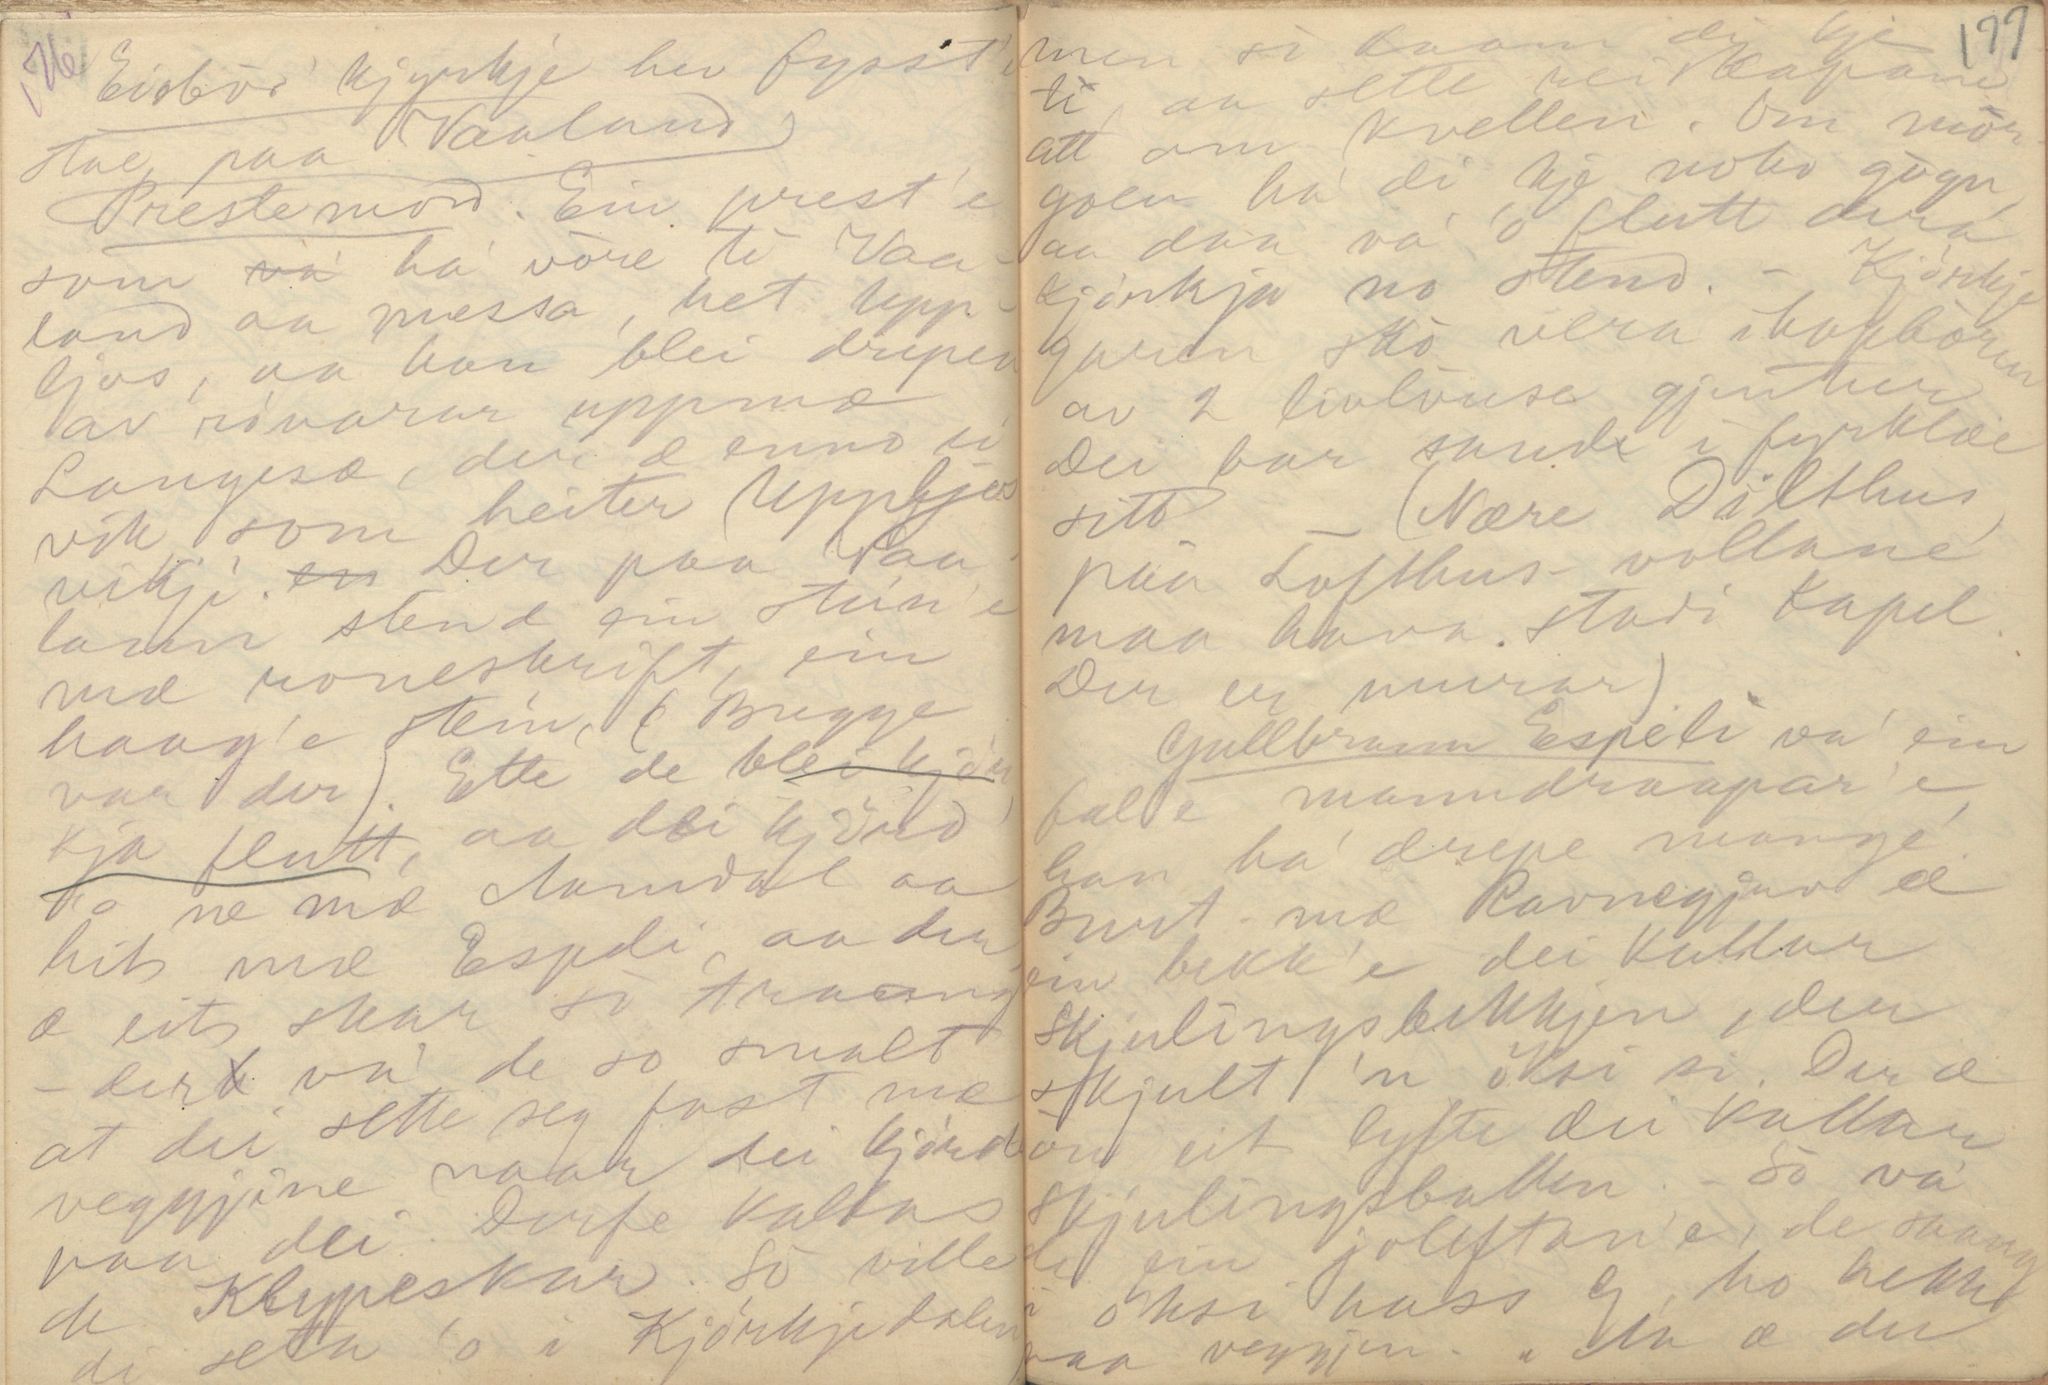 176
Eisbör' kjyrkje hev fysst'i
stae paa Vaaland
Prestemord. Ein prest'e
som va' ha' vöre ti Vaa-
land aa messa, het Upp-
ljos, aa han blei drepen
av rövarar uppmæ
Langesæ, der æ enno ei
vik som heiter Uppljos
vikji. en Der paa Vaa-
lann stend ein stein'e
mæ roneskrift, ein
haag'e stein, (Brygge
var der). Ette de blei kjör
kja flutt, aa dei kjörd'
'o ne mæ Aamdal aa
hit mæ Espeli, aa der
æ eit skar so traangt
- der va' de so smalt
at dei sette seg fast mæ
veggjine naar dei kjörde
paa dei. Derfe kallas
de Klypeskar. So ville
di seta 'o i Kjörkjedalen
177
men so kaam di kje
ti, aa sette reiskapane
att om kvellen. Om mör-
goen ha' di kje noko gogn,
aa daa va' 'o flutt der a'
kjörkja no stend. - Kjörkje
garen sko vera ihopbören
av 2 livlöuse gjentur
Dei bar sand i fyrklæe
sitt - (Nære Dalthus
paa Lofthus-vollane
maa hava stadi kapel.
Der er murar)
Gullbrann Espeli va' ein
fal'e manndraapar'e,
han ha' drepe mange.
Burt mæ Ravnegjuv æ
ein bekk'e dei kallar
Skjulingsbekkjen, der
skjult 'n öksi si. Der æ
ou eit lyfte dei kallar
Skjulingsballen. - So va'
de ein joleftan'e, de saang
i öksi hass G, ho hekk
paa veggjen. "Aa æ der